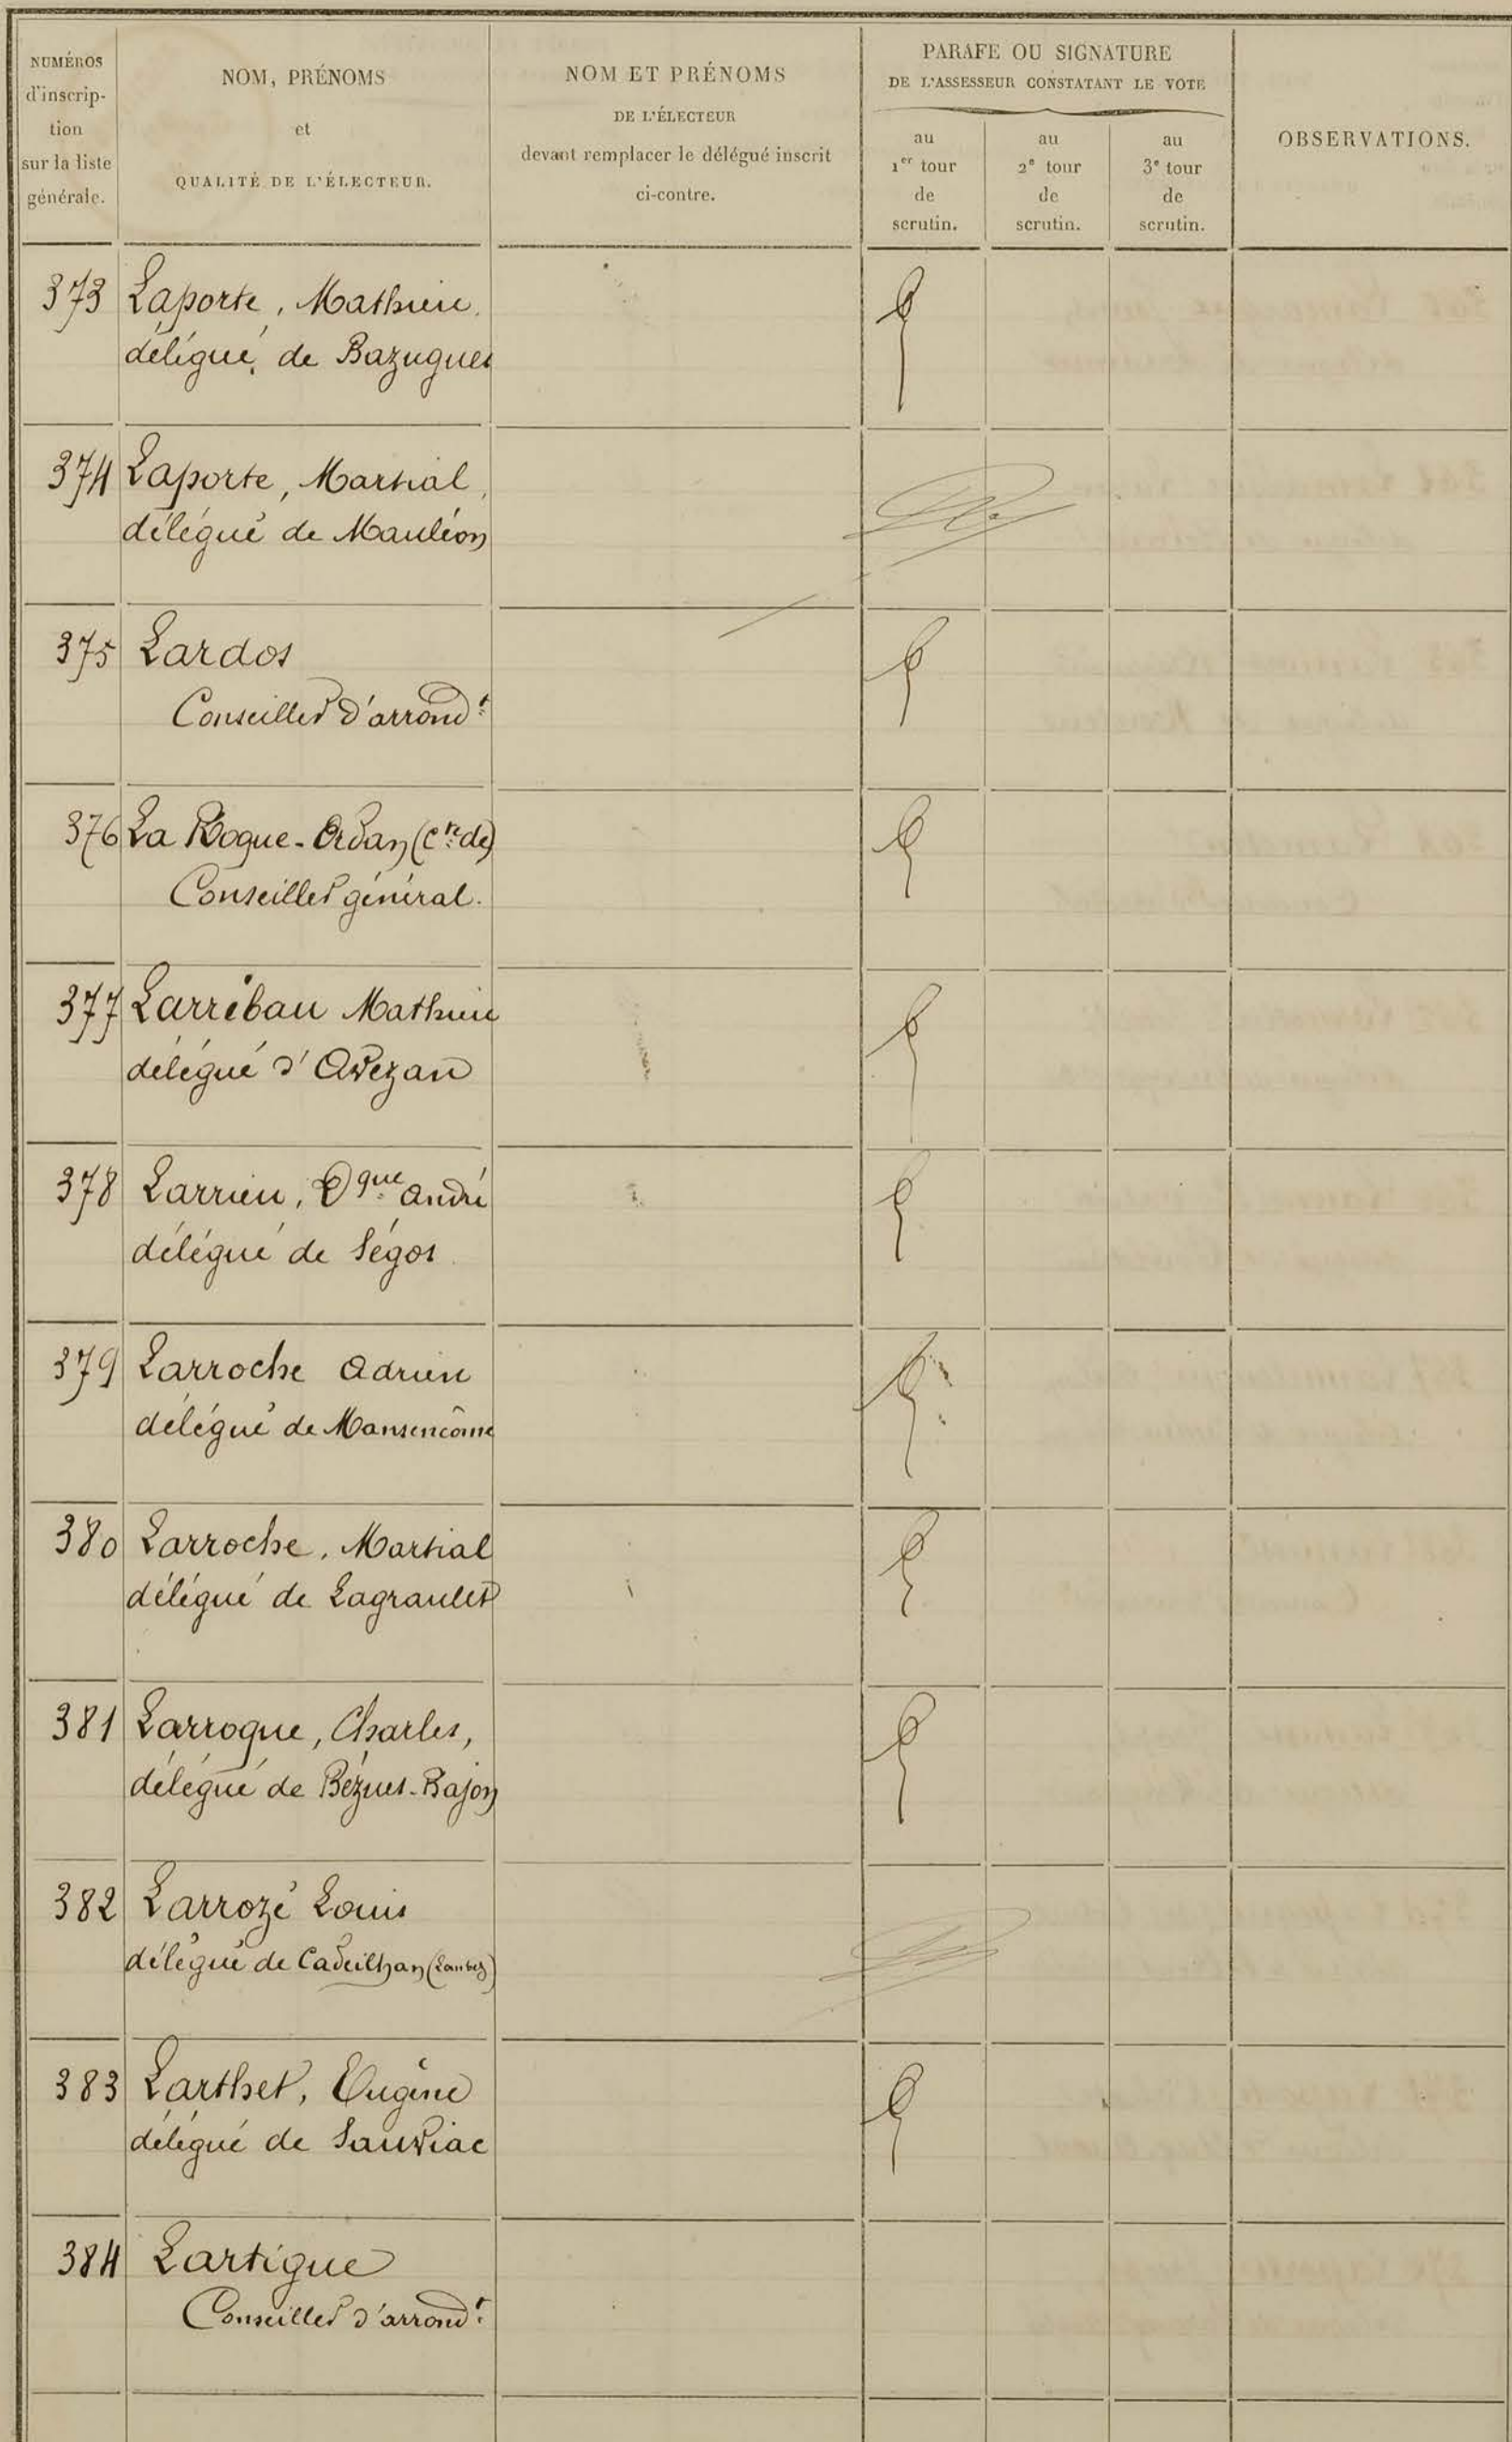 NUMÉROS
d'inscrip-
tion
sur la liste
générale.
NOM, PRÉNOMS
et
QUALITÉ DE L'ÉLECTEUR.
NOM ET PRÉNOMS
DE L'ÉLECTEUR
devant remplacer le délégué inscrit
ci-contre.
PARAFE OU SIGNATURE
DE L'ASSESSEUR CONSTATANT LE VOTE
au
1er tour
de
scrutin.
au
2e tour
de
scrutin.
au
3e tour
de
scrutin.
OBSERVATIONS.
373 Laporte, Mathieu.
délégué de Bazugues
374 Laporte, Martial,
délégué de Mauléon
375 Lardos
Conseiller d'arrondt
376 La Roque-Ordan (Cte de)
Conseiller général.
377 Larrébau Mathieu
délégué d'Avezan
378 Larrieu, Dque André
délégué de Ségos
379 Larroche Adrien
délégué de Mansencôme
380 Larroche, Martial
délégué de Lagraulet
381 Larroque, Charles,
délégué de Bézues-Bajon
382 Larrozé Louis
délégué de Cadeilhan (Lombez)
383 Larthet, Eugène
délégué de Sauviac
384 Lartigue
Conseiller d'arrondt